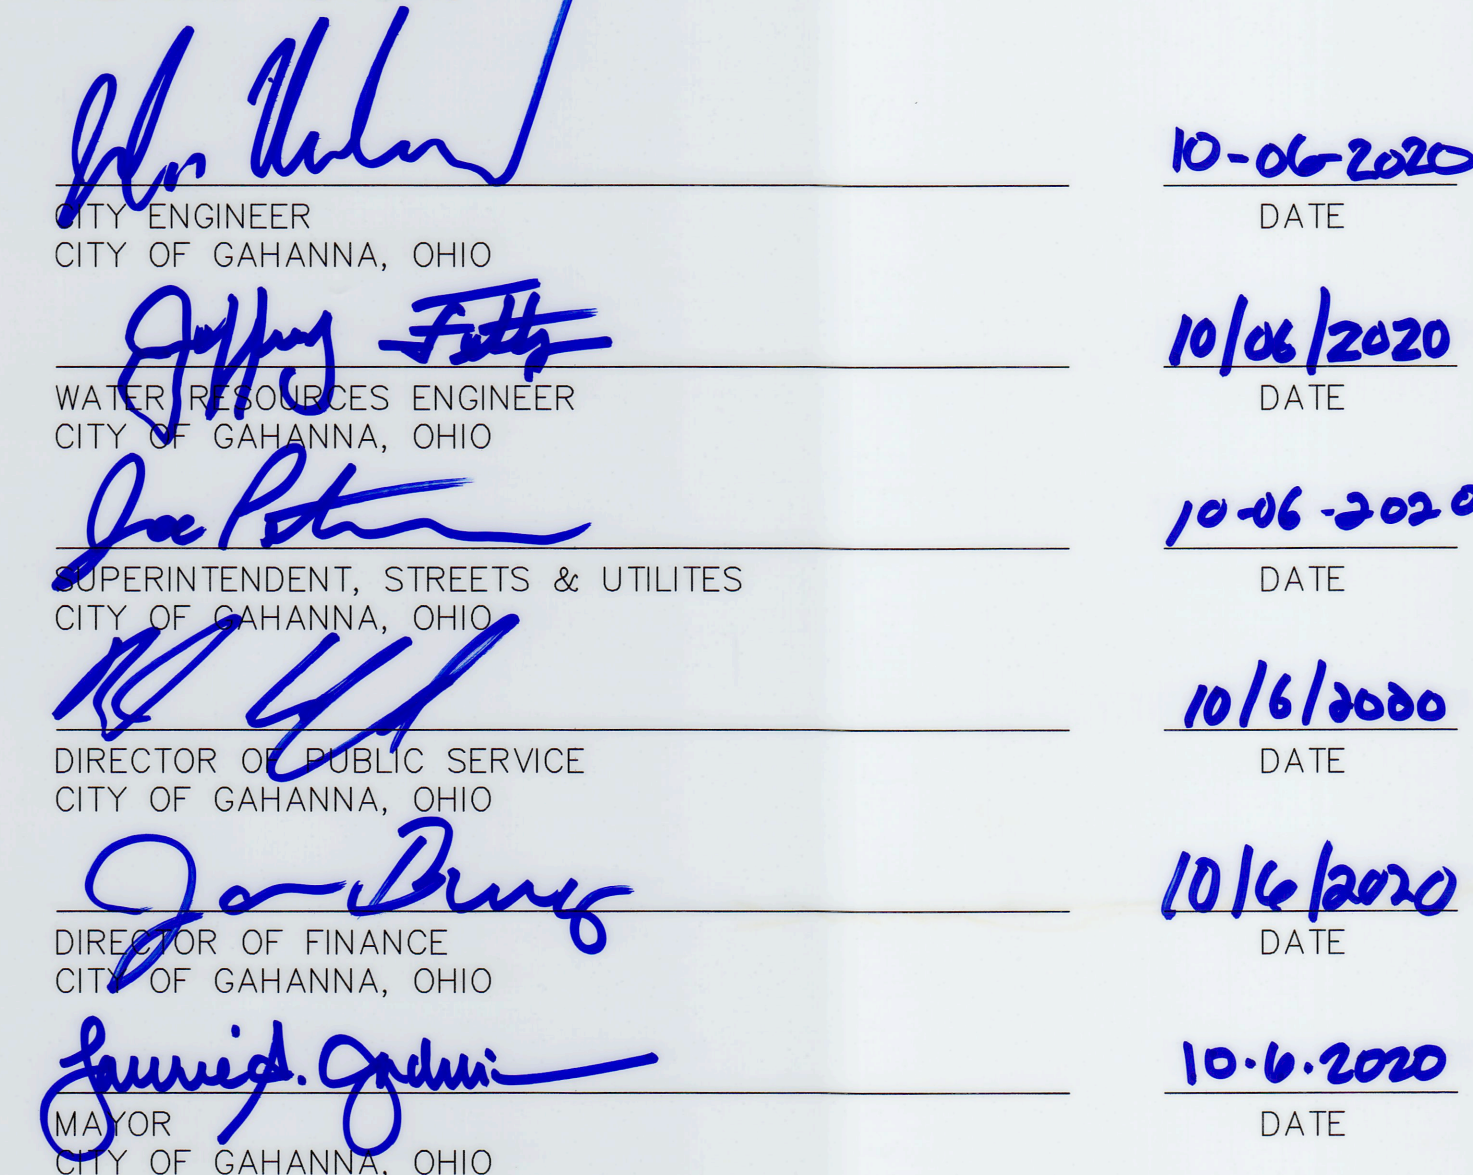 10-06-2020
CITY ENGINEER DATE
CITY OF GAHANNA, OHIO
Jeffrey 10/06/2020
WATER RESOURCES ENGINEER DATE
CITY OF GAHANNA, OHIO
Joe 10-06-2020
SUPERINTENDENT, STREETS & UTILITES DATE
CITY OF GAHANNA, OHIO
10/6/2020
DIRECTOR OF PUBLIC SERVICE DATE
CITY OF GAHANNA, OHIO
10/6/2020
DIRECTOR OF FINANCE DATE
CITY OF GAHANNA, OHIO
Laurie A. Jadwin 10.6.2020
MAYOR DATE
CITY OF GAHANNA, OHIO